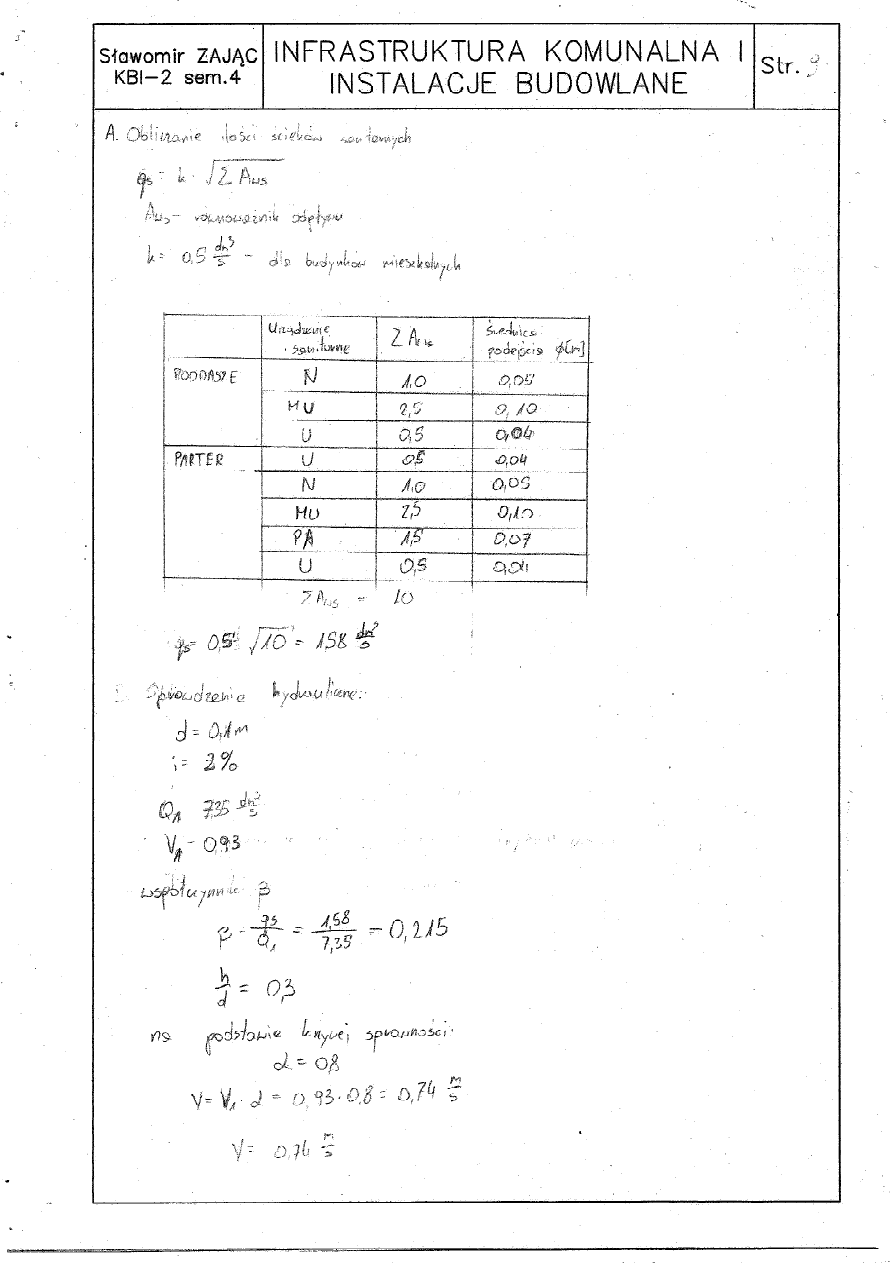 Sławomir ZAJĄC
KBI-2 sem.4
INFRASTRUKTURA KOMUNALNA I
INSTALACJE BUDOWLANE
Str. 9
A. Obliczanie ilości ścieków sanitarnych
qs = k · √Σ Aws
Aws - równoważnik odpływu
k = 0,5 dm³/s - dla budynków mieszkalnych
Urządzenie sanitarne | Σ Aws | Średnica podejścia φ[m]
PODDASZE | N | 1,0 | 0,05
MU | 2,5 | 0,10
U | 0,5 | 0,04
PARTER | U | 0,5 | 0,04
N | 1,0 | 0,05
MU | 2,5 | 0,10
PA | 1,5 | 0,07
U | 0,5 | 0,04
Σ Aws = 10
qs = 0,5 √10 = 1,58 dm³/s
Sprawdzenie hydrauliczne:
d = 0,1m
i = 2%
Q1 7,35 dm³/s
V1 - 0,93
współczynnik β
β - qs/Q1 = 1,58/7,35 = 0,215
h/d = 0,3
na podstawie krzywej sprawności:
α = 0,8
V = V1 · α = 0,93 · 0,8 = 0,74 m/s
V = 0,74 m/s